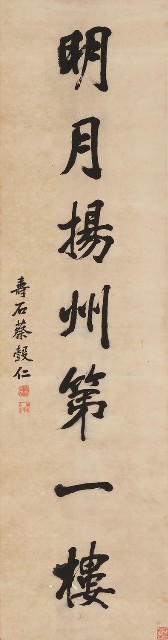 明月揚州第一樓
壽石蔡㝅仁